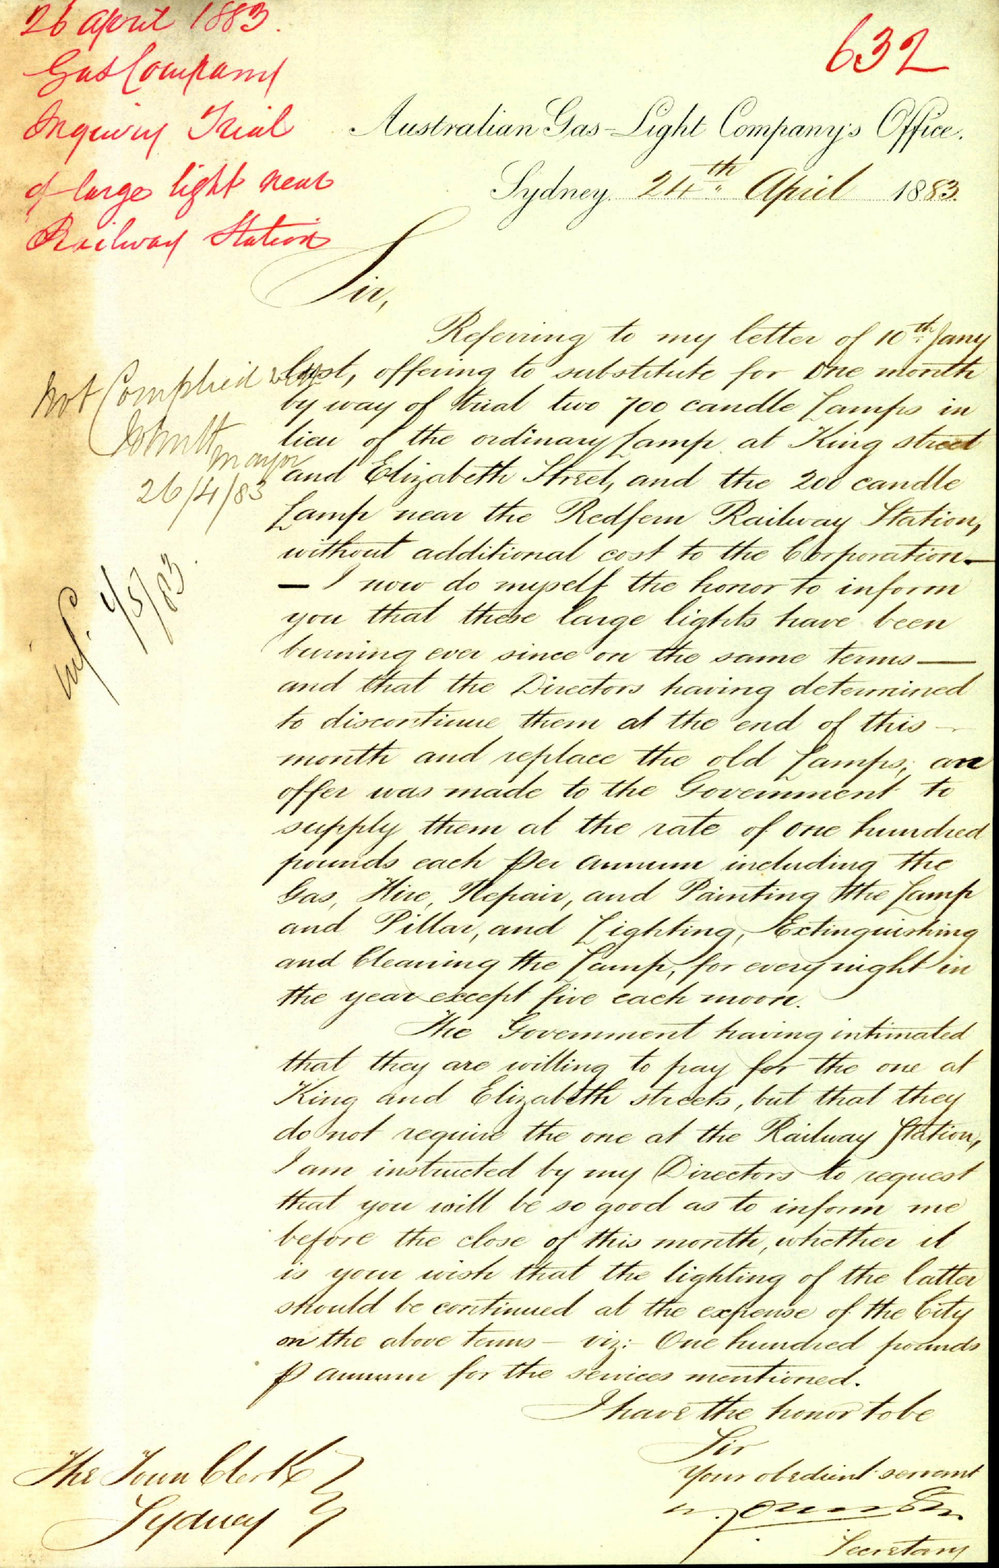 26 April 1883.
Gas Company
Inquiry Trial
of large light near
Railway Station
632
Australian Gas-Light Company's Office.
Sydney 24th April 1883.
Sir,
Referring to my letter of 10th Jany
last, offering to substitute for one month
by way of trial two 700 candle Lamps in
lieu of the ordinary Lamp at King street
and Elizabeth Street, and the 200 candle
Lamp near the Redfern Railway Station,
without additional cost to the Corporation.—
— I now do myself the honor to inform
you that these large lights have been
burning ever since on the same terms—
and that the Directors having determined
to discontinue them at the end of this —
month and replace the old Lamps; an
offer was made to the Government to
supply them at the rate of one hundred
pounds each per annum including the
Gas, Hire, Repair, and Painting the Lamp
and Pillar, and Lighting, Extinguishing
and Cleaning the Lamp, for every night in
the year except five each moon.
The Government having intimated
that they are willing to pay for the one at
King and Elizabeth streets, but that they
do not require the one at the Railway Station,
I am instructed by my Directors to request
that you will be so good as to inform me
before the close of this month, whether it
is your wish that the lighting of the latter
should be continued at the expense of the City
on the above terms — viz:- One hundred pounds
p annum for the services mentioned.
I have the honor to be
Sir
Your obedient servant
Secretary
The Town Clerk
Sydney
Not Complied with
Mayor
26/4/83
1/5/83.